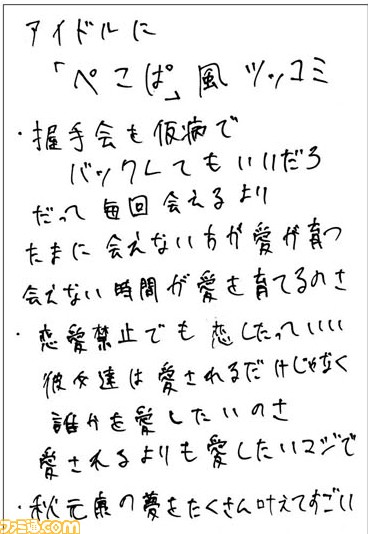 アイドルに
「ぺこぱ」風 ツッコミ
・握手会を仮病で
バックレてもいいだろ
だって 毎回 会えるより
たまに 会えない方が愛が育つ
会えない 時間が愛を育てるのさ
・恋愛禁止でも 恋したっていい
彼女達は 愛されるだけじゃなく
誰かを愛したいのさ
愛されるよりも愛したいマジで
・秋元康の夢をたくさん叶えてすごい
ファミ通.com